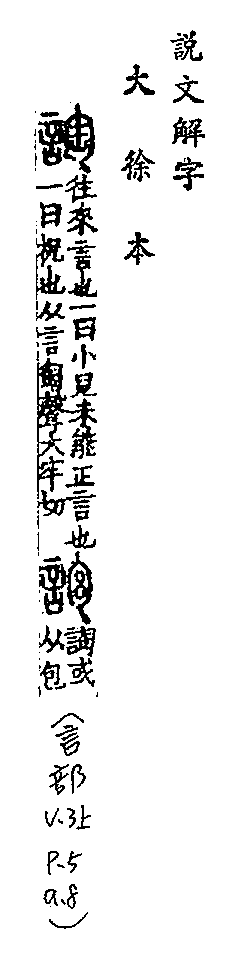 説文解字
大徐本
䛬往來言也一曰小兒未能正言也
一曰祝也从言匋聲大牢切
䛌䛬或
从包
(言部
V.3上
P.5
a.8)